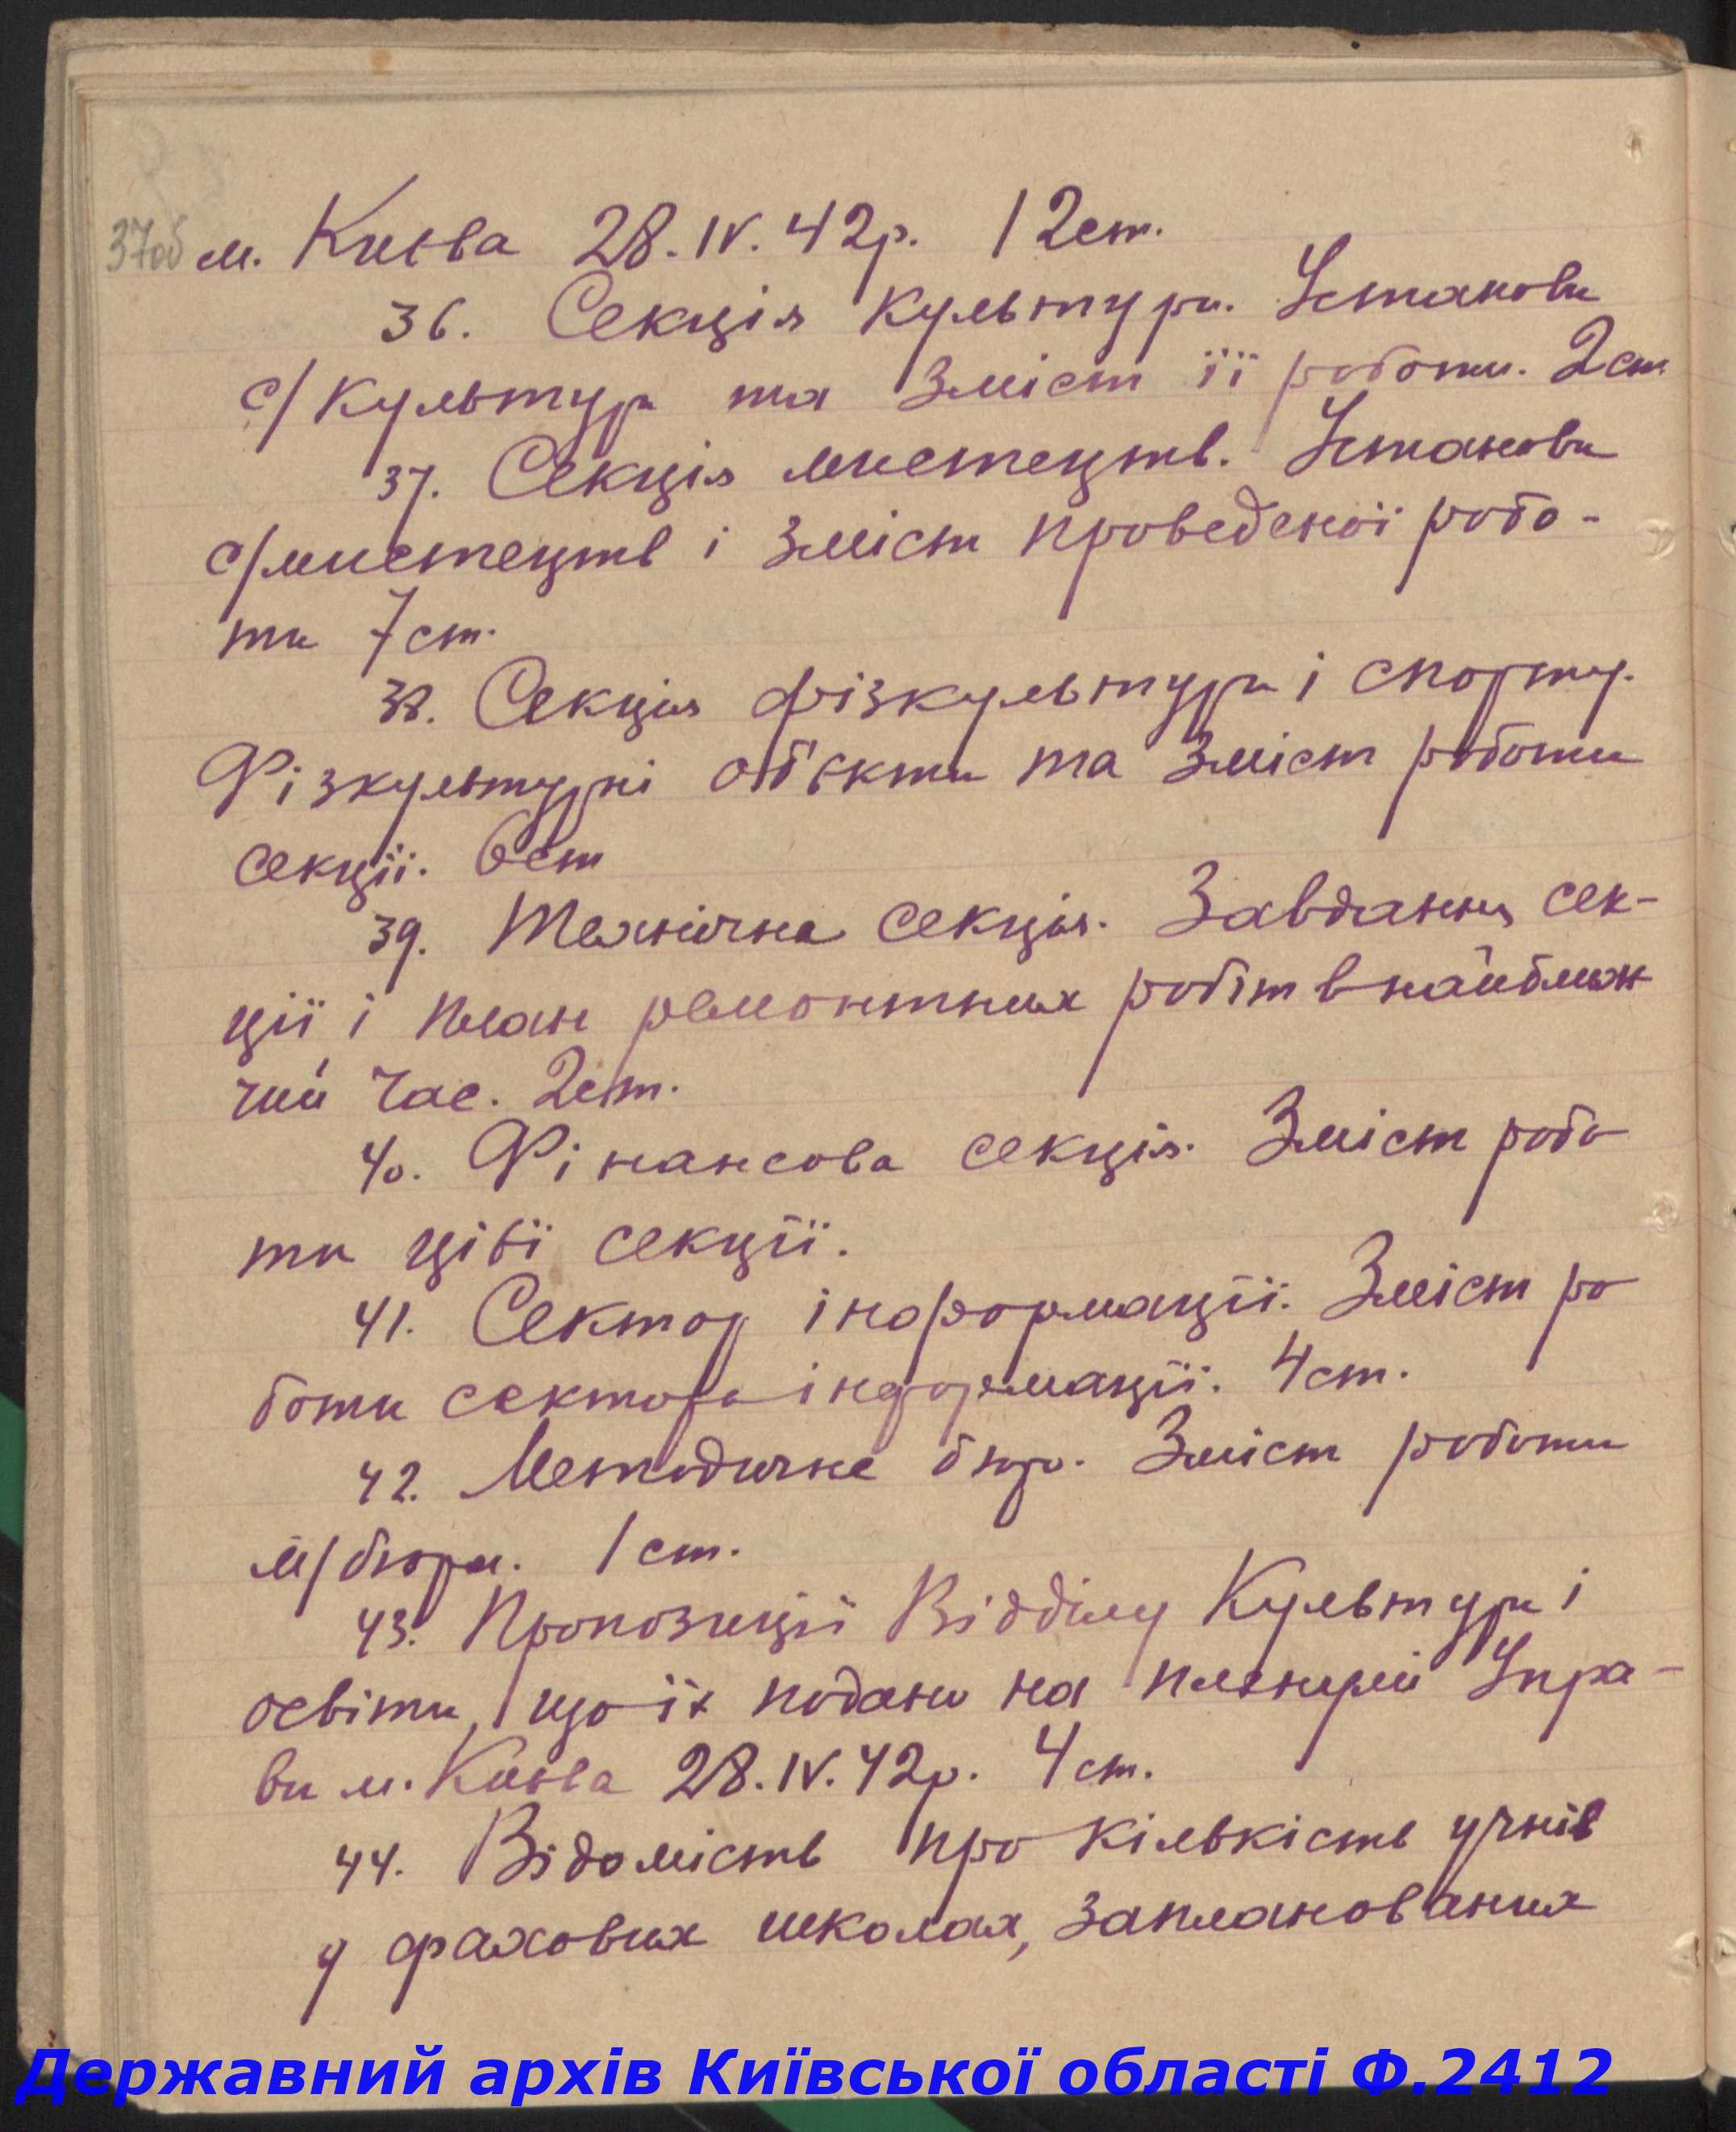 37об м. Києва 28.IV.42р. 12ст.
36. Секція культури. Установи
с/культури та зміст її роботи. 2ст
37. Секція мистецтв. Установи
с/мистецтв і зміст проведеної робо-
ти 7ст.
38. Секція фізкультури і спорту.
Фізкультурні об'єкти та зміст роботи
секції. 6ст
39. Технічна секція. Завдання сек-
ції і план ремонтних робіт в найближ
чий час. 2ст.
40. Фінансова секція. Зміст робо
ти цієї секції.
41. Сектор інформації. Зміст ро
боти сектора інформації. 4ст.
42. Методичне бюро. Зміст роботи
м/бюра. 1ст.
43. Пропозиції Відділу Культури і
освіти, що їх подано на пленумі Упра-
ви м. Києва 28.IV.42р. 4ст.
44. Відомість про кількість учнів
у фахових школах, запланованих
Державний архів Київської області Ф.2412